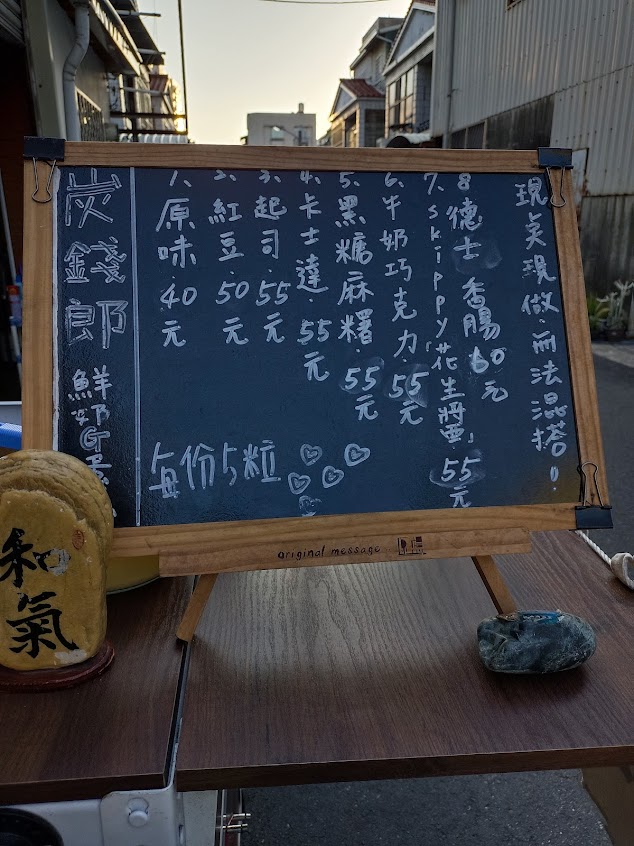 炭錢郎 鮮奶
1.原味.40元
2.紅豆.50元
3.起司.55元
4.卡士達.55元
5.黑糖麻糬.55元
6.牛奶巧克力55元
7.skippy「花生醬」55元
8德士香腸60元
現奌現做.無法混搭!
每份5粒
original message
和氣